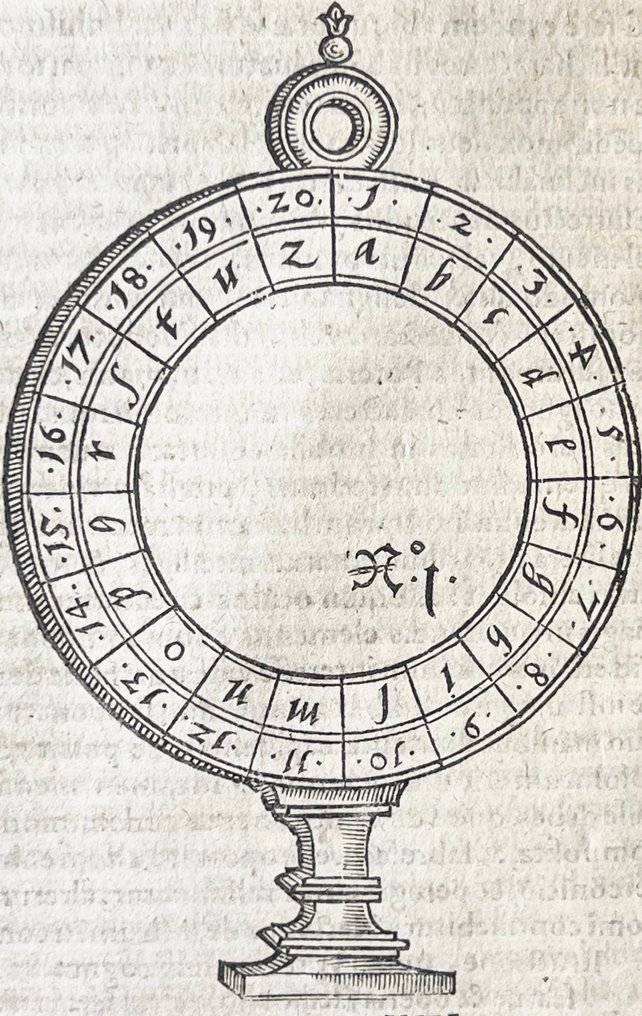 ·1· ·2· ·3· ·4· ·5· ·6· ·7· ·8· ·9· ·10· ·11· ·12· ·13· ·14· ·15· ·16· ·17· ·18· ·19· ·20·
a b c d e f g h i l m n o p q r ſ t u z
N°.1.